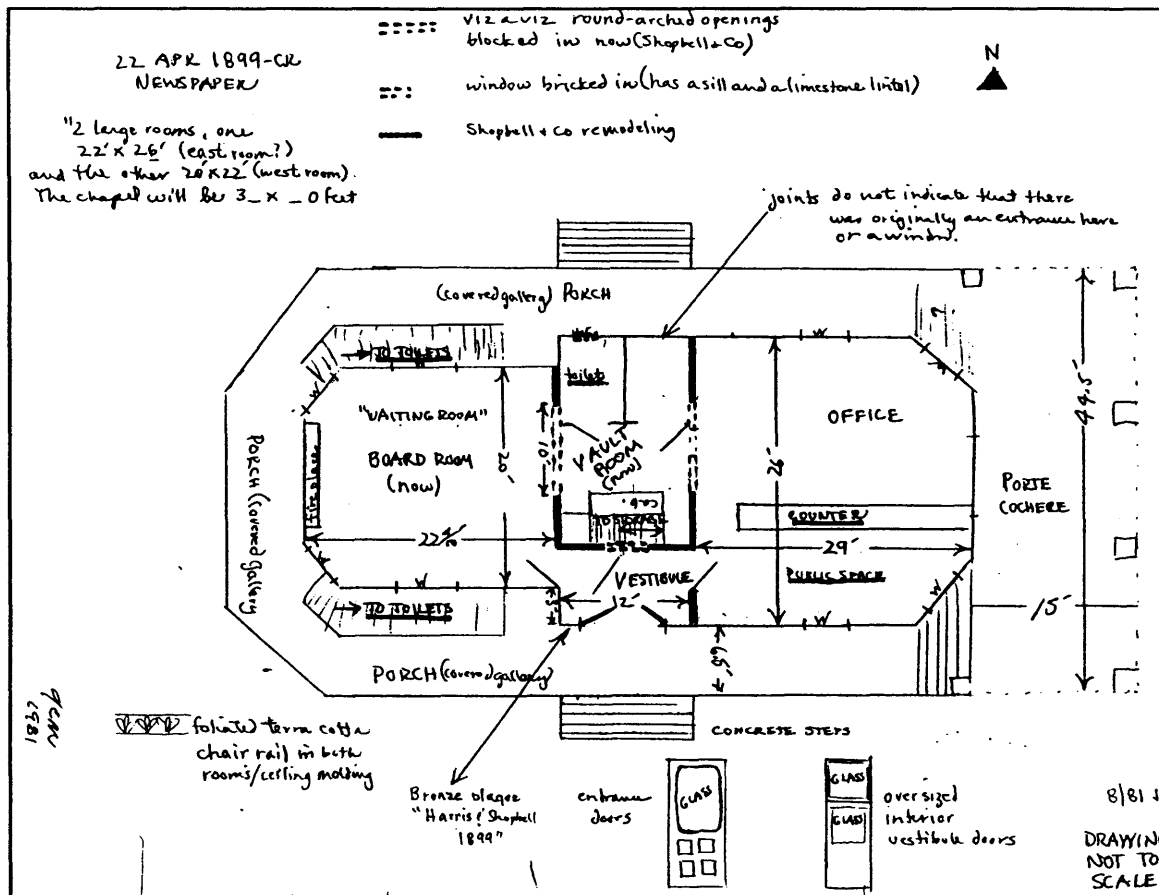 22 APR 1899-CR
NEWSPAPER
"2 large rooms, one
22' x 26' (east room?)
and the other 20'x22' (west room).
The chapel will be 3_ x _0 feet
viz a viz round-arched openings
blocked in now (Shopbell & Co)
window bricked in (has a sill and a limestone lintel)
Shopbell + Co remodeling
N
joints do not indicate that there
was originally an entrance here
or a window.
(covered gallery) PORCH
TO TOILETS
W
W
toilets
W
?
W
"WAITING ROOM"
BOARD ROOM
(now)
fireplace
20'
10'
VAULT
ROOM
(now)
26'
OFFICE
44.5'
PORTE
COCHERE
PORCH (covered gallery)
TO STORAGE
COUNTER
22
29'
PUBLIC SPACE
VESTIBULE
12'
15'
W
W
W
W
TO TOILETS
6.5'
PORCH (covered gallery)
CONCRETE STEPS
1981
foliated terra cotta
chair rail in both
rooms/ceiling molding
Bronze plaque
"Harris & Shopbell
1899"
entrance
doors
GLASS
GLASS
GLASS
oversized
interior
vestibule doors
8/81
DRAWING
NOT TO
SCALE